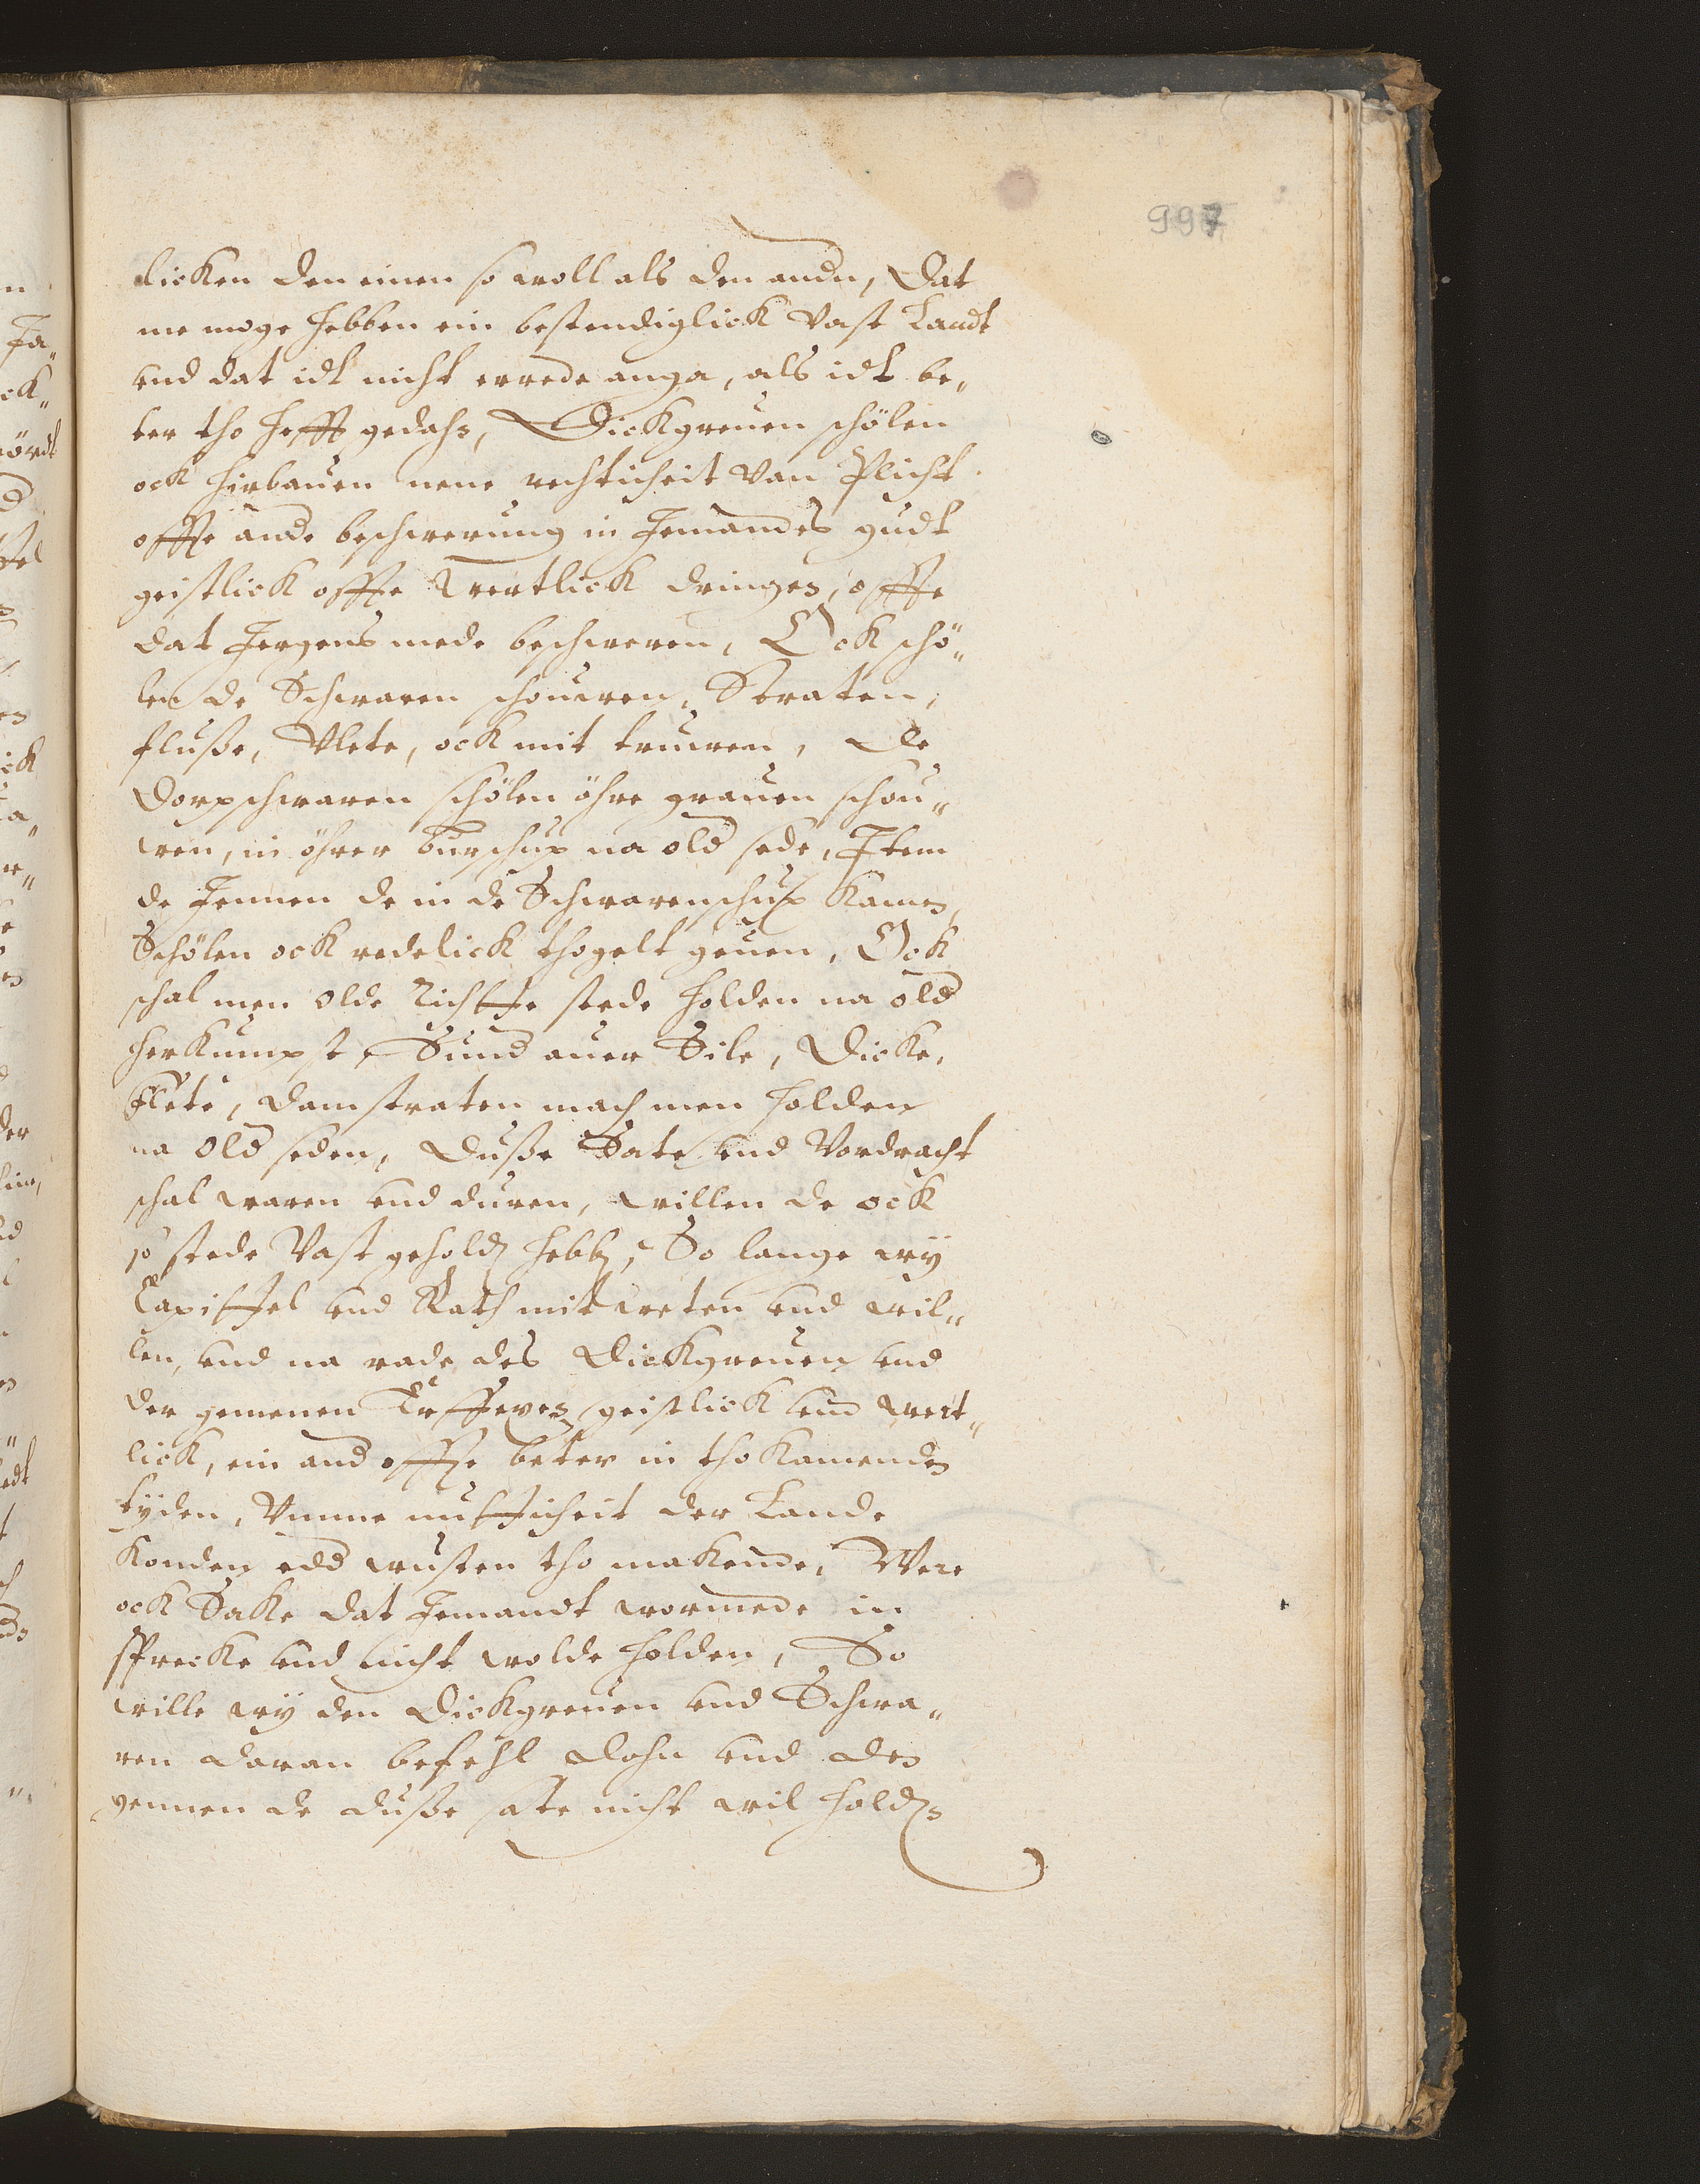 997
licken den einen so woll als den andn, Dat
me moge hebben ein bestendiglick Vast Landt
und dat idt nicht errede anga, als idt be„
ter tho hefft gedahn, Dickgreuen schölen
ock hirbauen nene rechticheit Van Plicht
offte ande beschwerung in Jemandes gudt
geistlick offte Wertlick dringen, offte
dat Jergens mede beschweren, Ock schö„
len de Schwaren schouwen, Straten,
fluße, Vlete, ock mit truwen, De
Dorpschwaren schölen öhre grauen schou„
wen, in öhrer burschup na old sede, Item
de Jennen de in de Schwarenschup Kamen,
Schölen ock redelick thogelt geuen, Ock
schal men olde Richtte stede holden na old
herkumpst, Sund auer Sile, Dicke,
flete, damstraten mach men holden
na old seden, Duße Sate und Vordracht
schal waren und duren, willen de ock
so stede Vast geholdn hebbn, So lange wÿ
Capittel und Rath mit weten und wil„
len, und na rade des Dickgreuen und
der gemenen Erffexen geistlick und Wert„
lick, ein and offte beter in tho kamenden
tÿden, Vmme nutticheit der Lande
Konden edd wusten tho makende, Were
ock Sake dat Jemandt wormede in
spreke und nicht wolde holden, So
wille wÿ den Dickgreuen und Schwa„
ren daran befehl dohn und den
gennen de duße sate nicht wil holdn